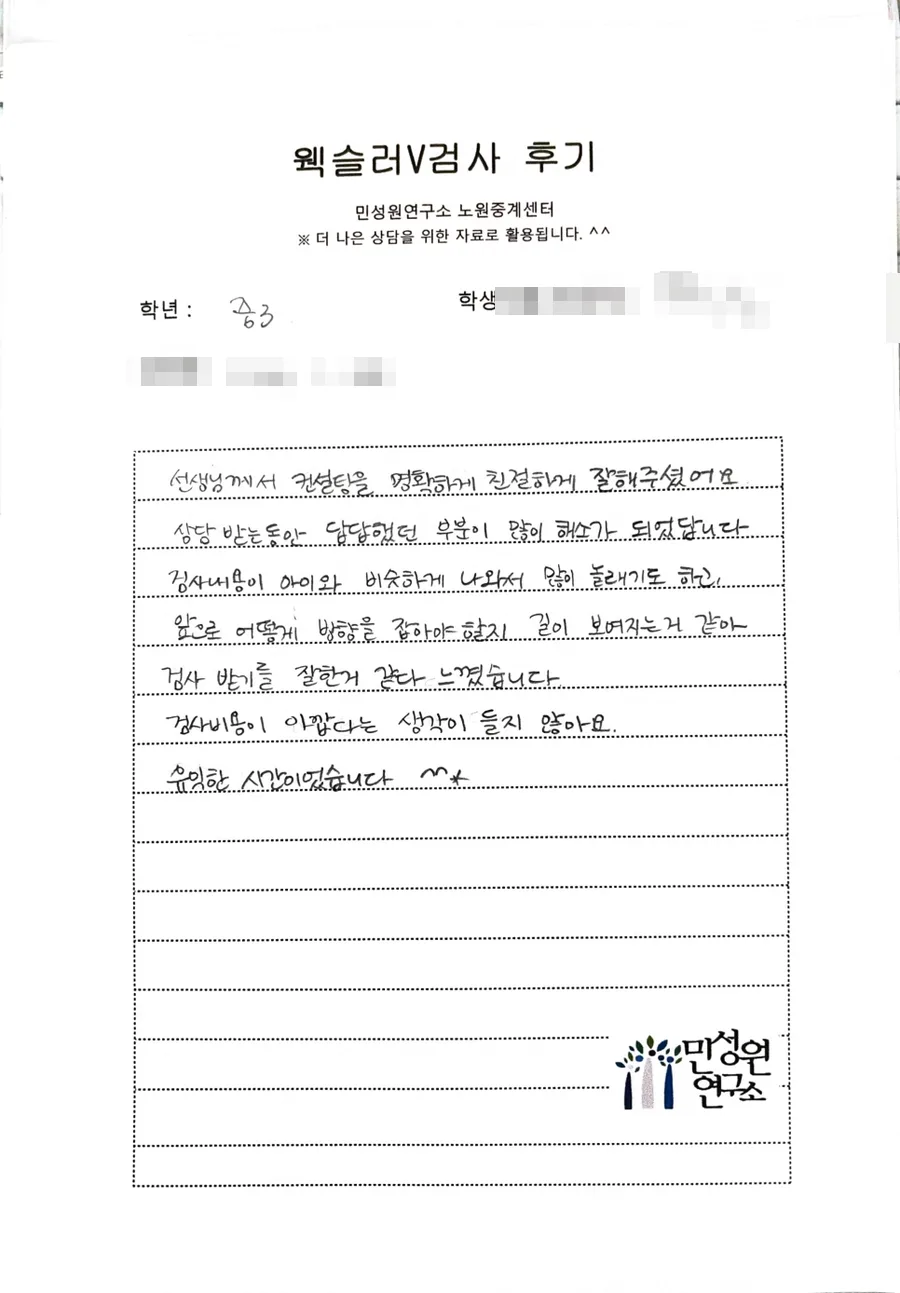 웩슬러V검사 후기
민성원연구소 노원중계센터
※ 더 나은 상담을 위한 자료로 활용됩니다. ^^
학년 : 중3
학생
선생님께서 컨설팅을 명확하게 친절하게 잘해주셨어요
상담 받는동안 답답했던 부분이 많이 해소가 되었답니다
검사내용이 아이와 비슷하게 나와서 많이 놀래기도 하고,
앞으로 어떻게 방향을 잡아야 할지 길이 보여지는거 같아
검사 받기를 잘한거 같다 느꼈습니다.
검사비용이 아깝다는 생각이 들지 않아요.
유익한 시간이었습니다 ^^*
민성원
연구소